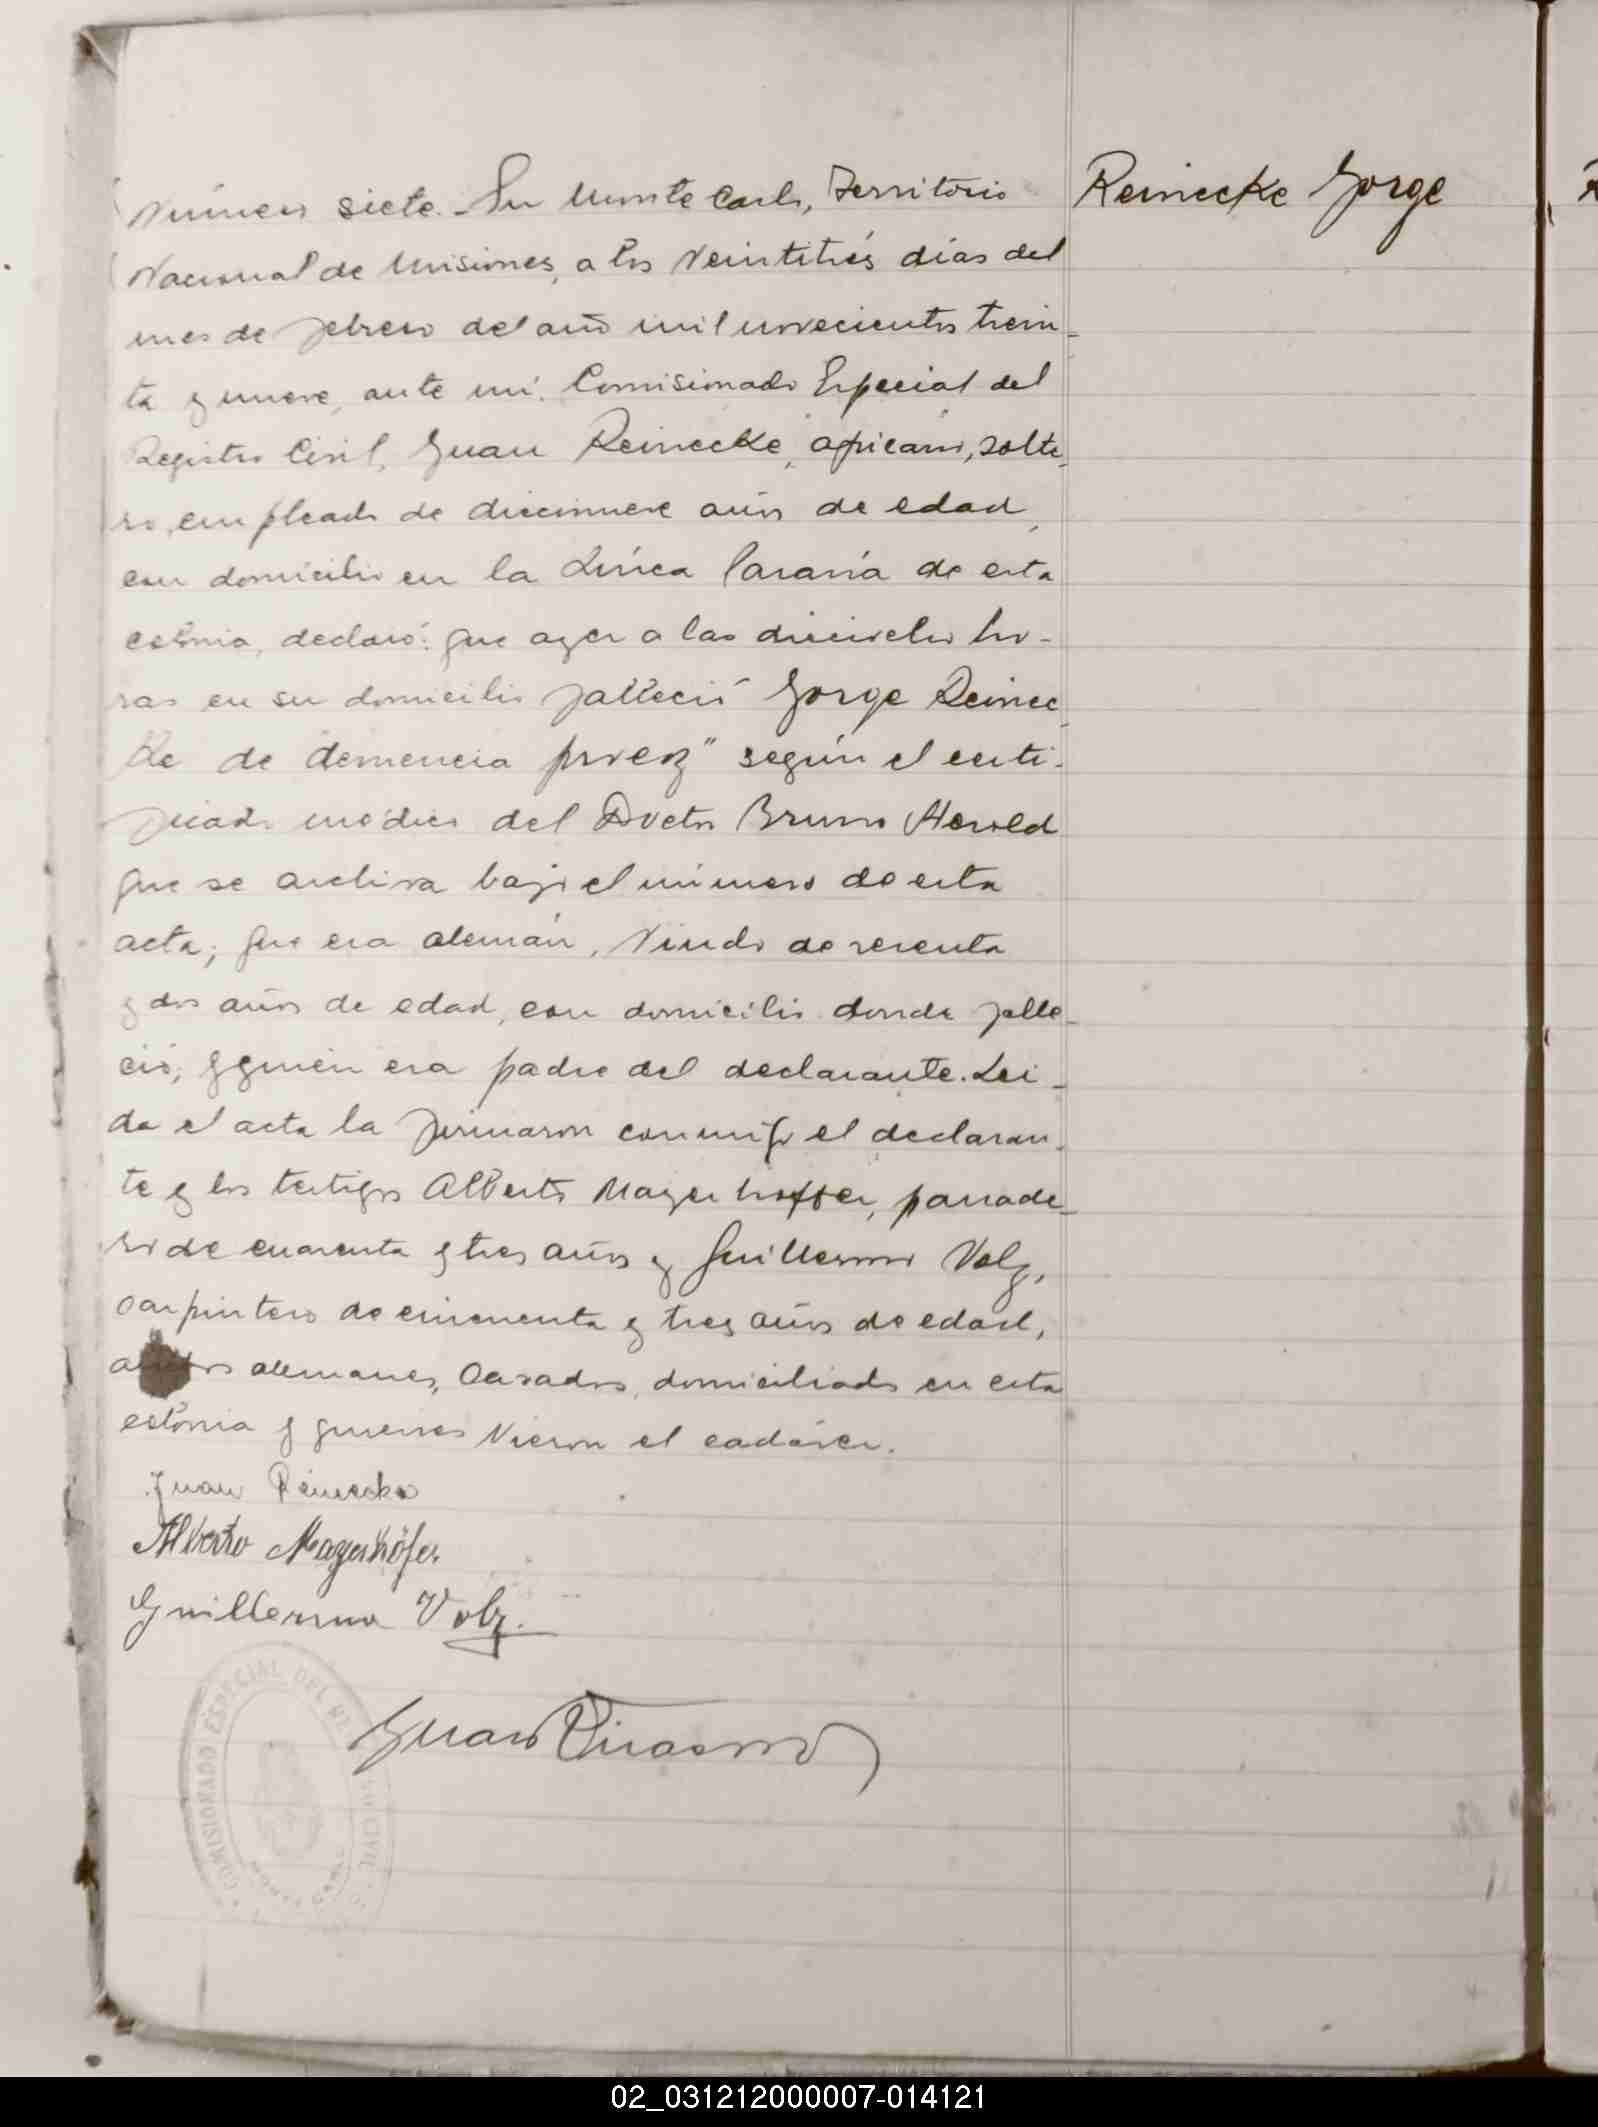 Número siete. En Monte Carlo, Territorio
Reinecke Jorge
Nacional de Misiones, a los veintitrés días del
mes de febrero del año mil novecientos trein-
ta y nueve, ante mí. Comisionado Especial del
Registro Civil, Juan Reinecke, africano, solte-
ro, empleado de diecinueve años de edad,
con domicilio en la Línea Paraná de esta
colonia, declaró: que ayer a las dieciocho ho-
ras en su domicilio falleció Jorge Reinec
ke de demencia precoz" según el certi-
ficado médico del Doctor Bruno Herold
que se archiva bajo el número de esta
acta; que era alemán, viudo de sesenta
y dos años de edad, con domicilio donde falle-
ció; y quién era padre del declarante. Lei-
da el acta la firmaron conmigo el declaran-
te y los testigos Alberto Mayerhoffer, panade-
ro de cuarenta y tres años y Guillermo Volz,
carpintero de cincuenta y tres años de edad,
ambos alemanes, casados, domiciliados en esta
colonia y quienes vieron el cadáver.
Juan Reinecke
Alberto Mayerhöfer
Guillermo Volz.
COMISIONADO ESPECIAL DEL RE CIVIL
Juan
02_031212000007-014121